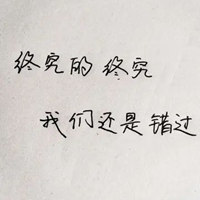 终究的终究
我们还是错过